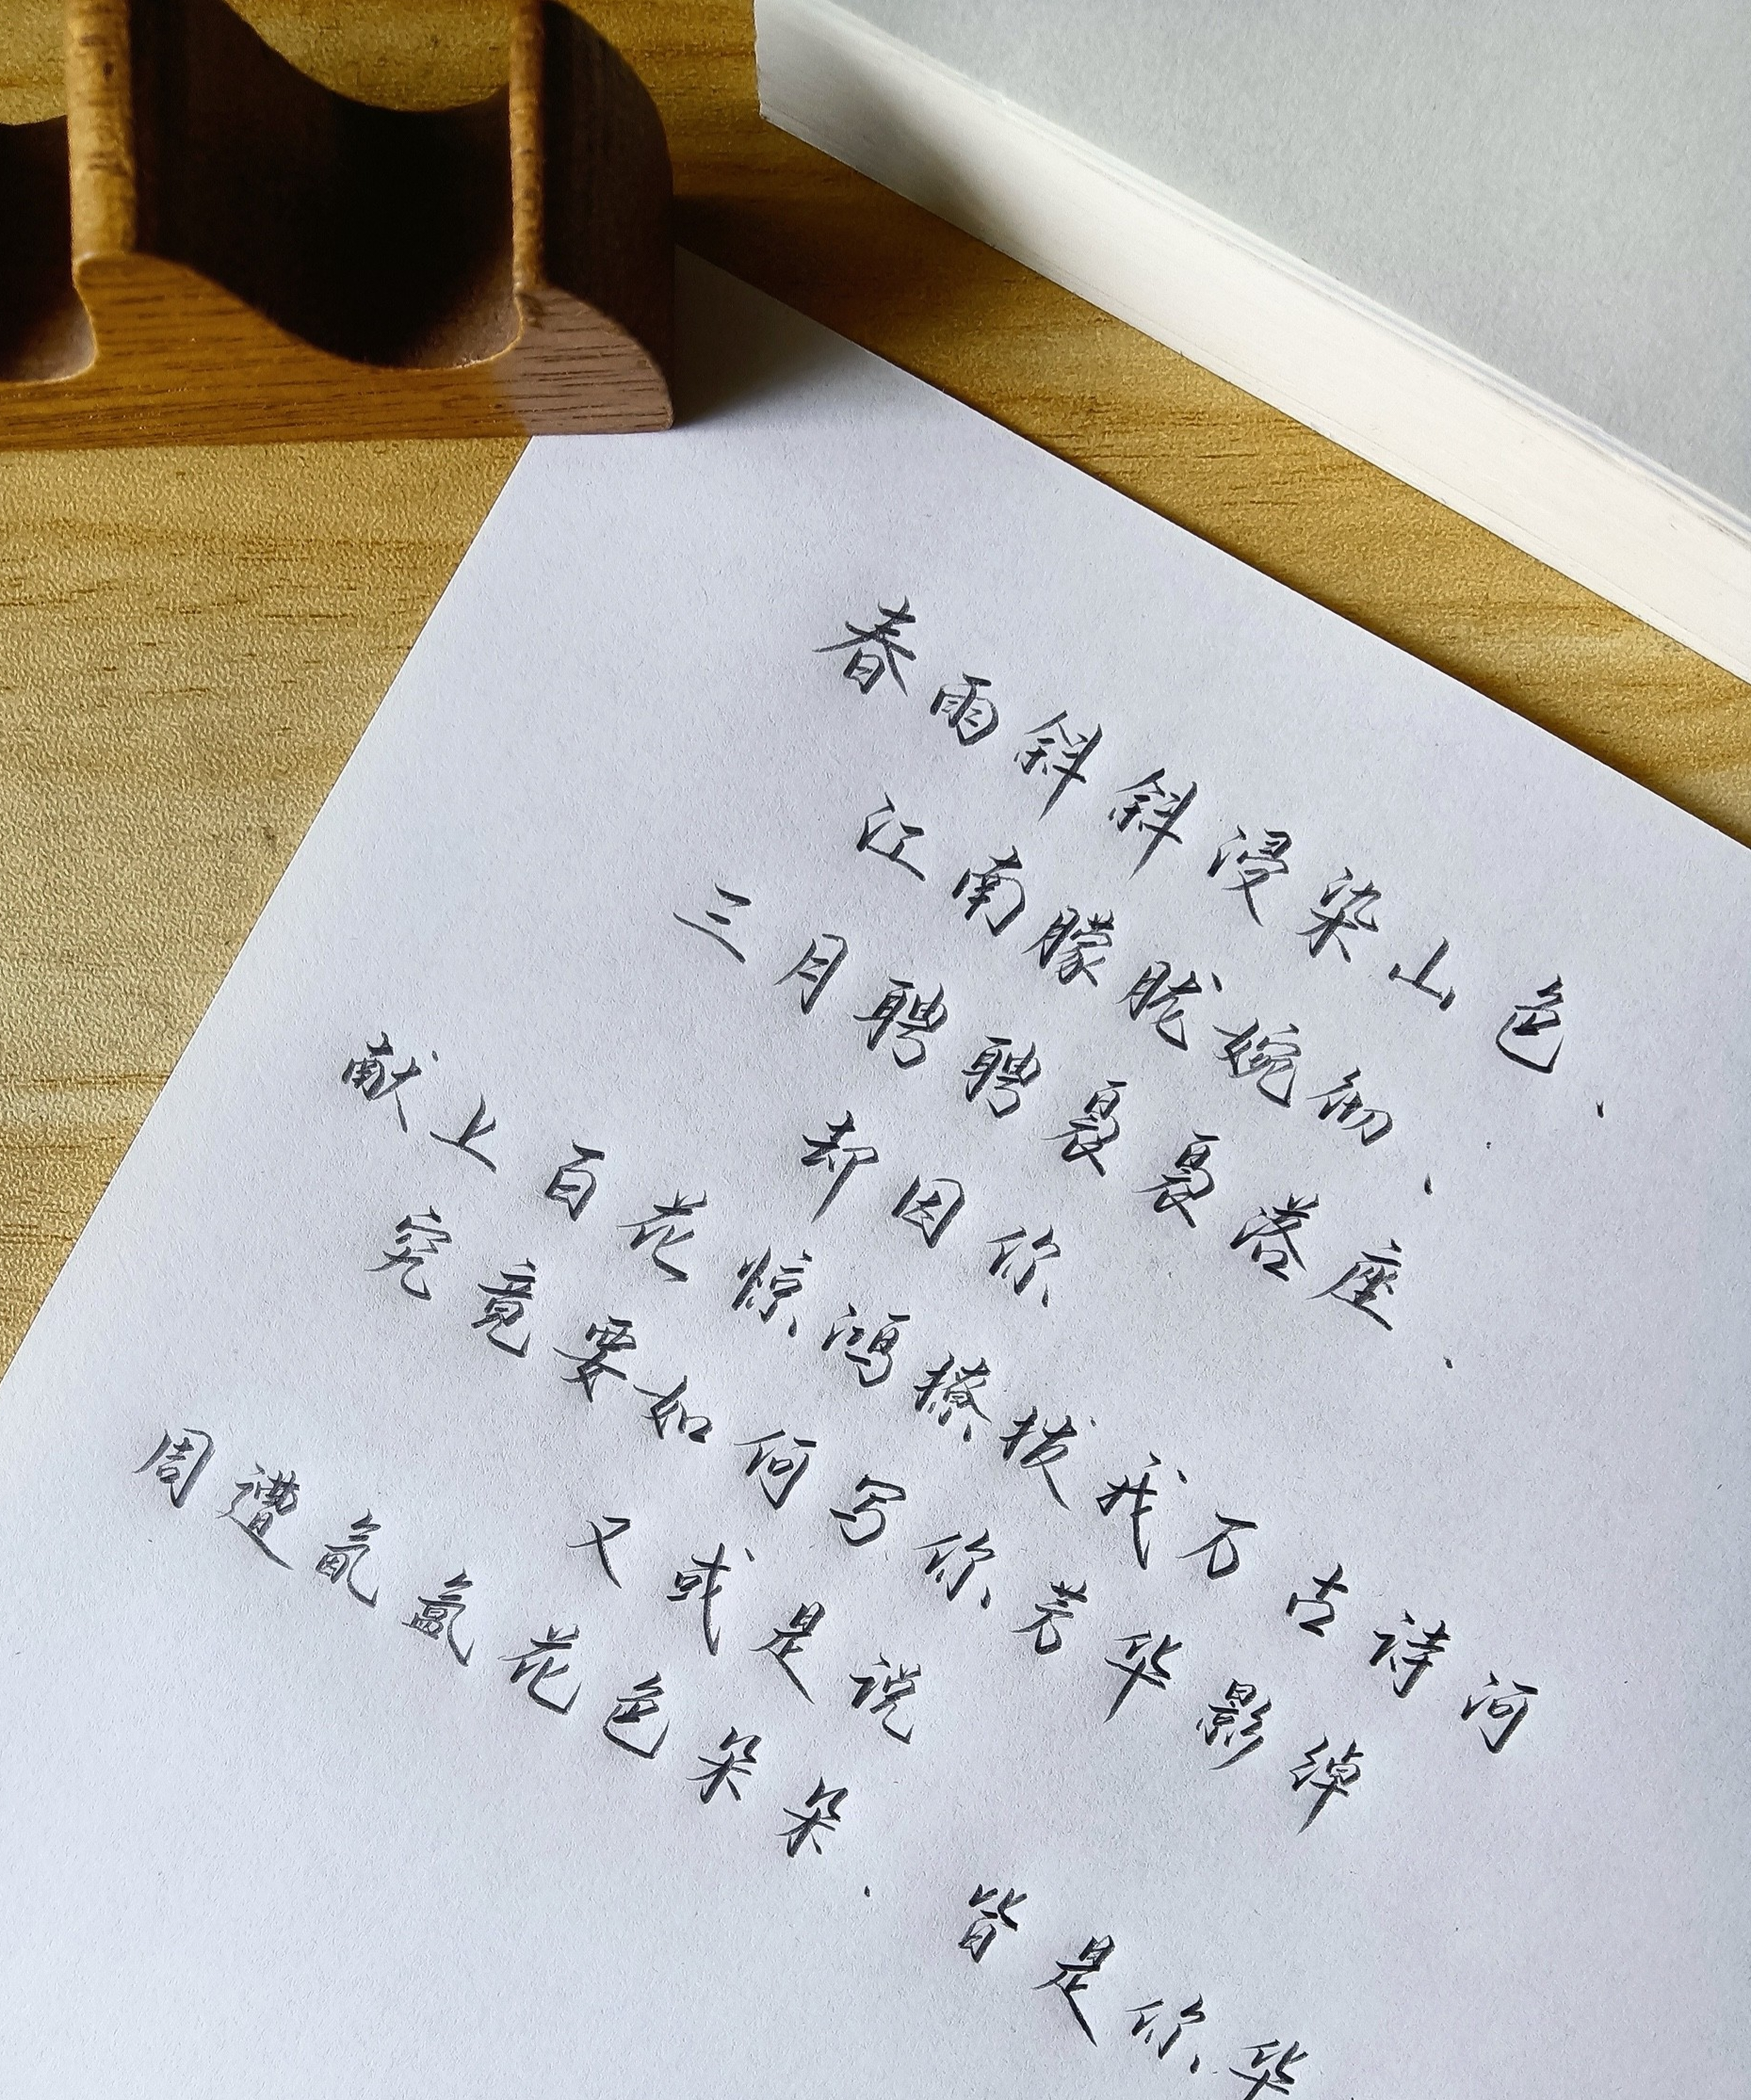 春雨斜斜浸染山色、
江南朦胧婉约、
三月聘聘袅袅落座、
却因你
献上百花惊鸿撩拨我万古诗河
究竟要如何写你芳华影绰
又或是说
周遭氤氲花色朵朵、皆是你华